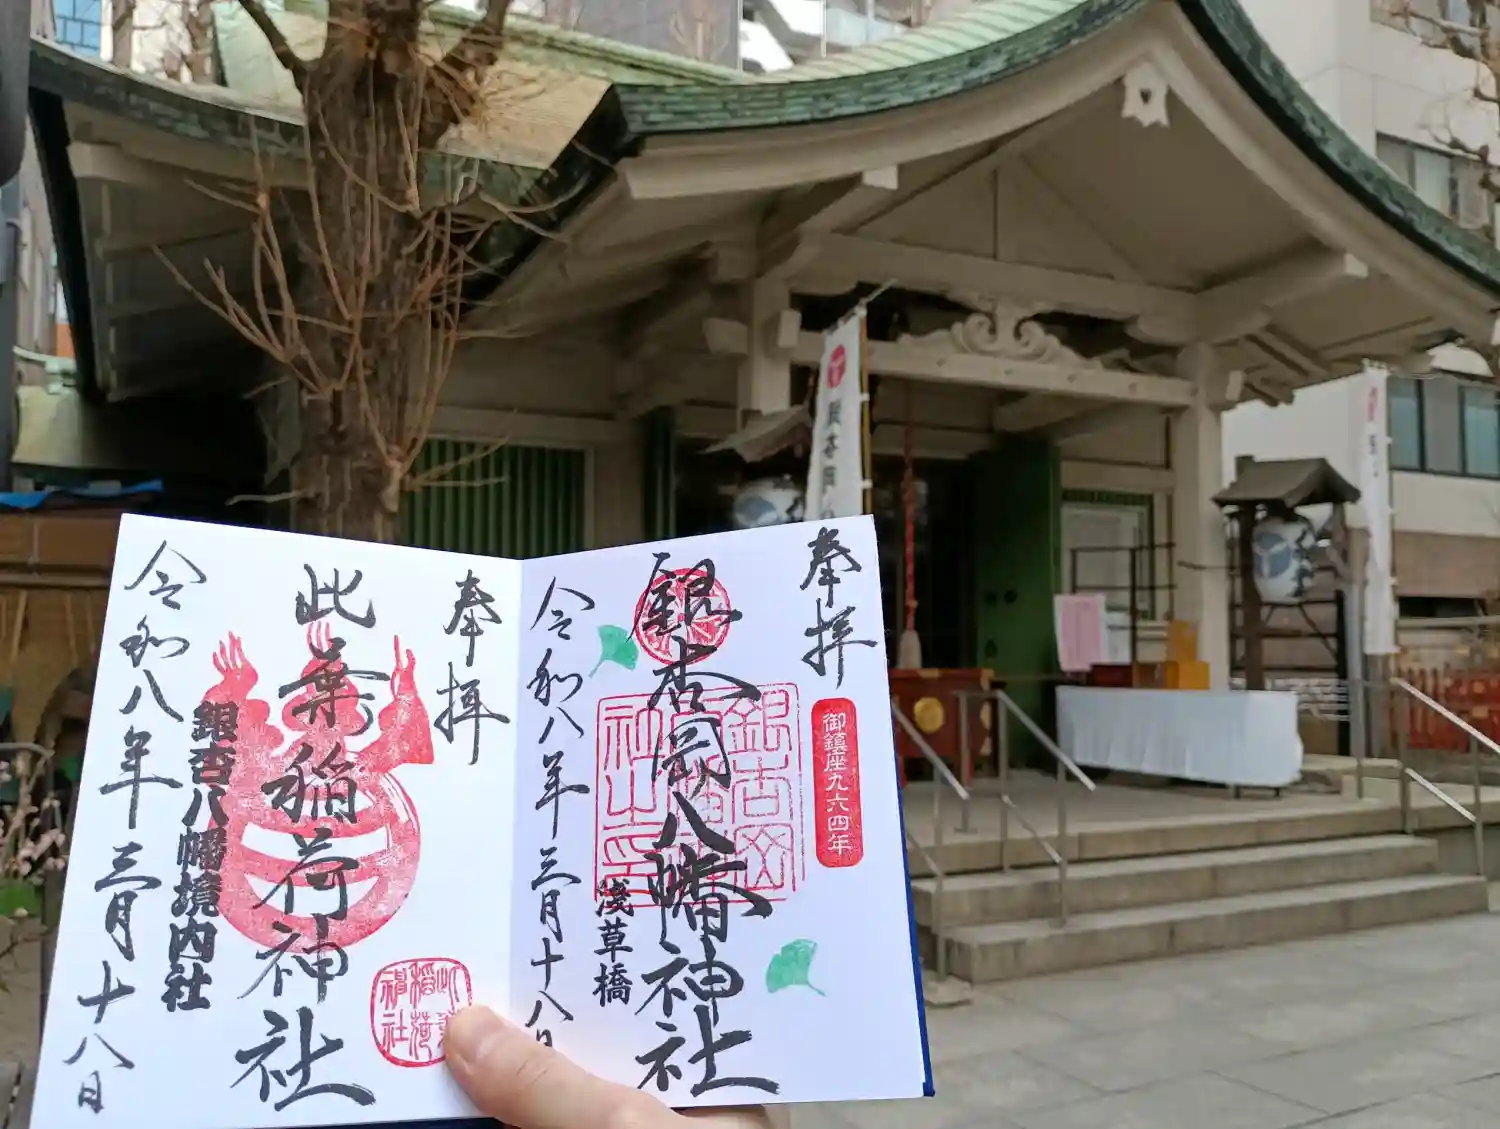 奉拝
御鎮座九六四年
銀杏岡八幡神社
浅草橋
令和八年三月十八日
奉拝
此葉稲荷神社
銀杏八幡境内社
令和八年三月十八日